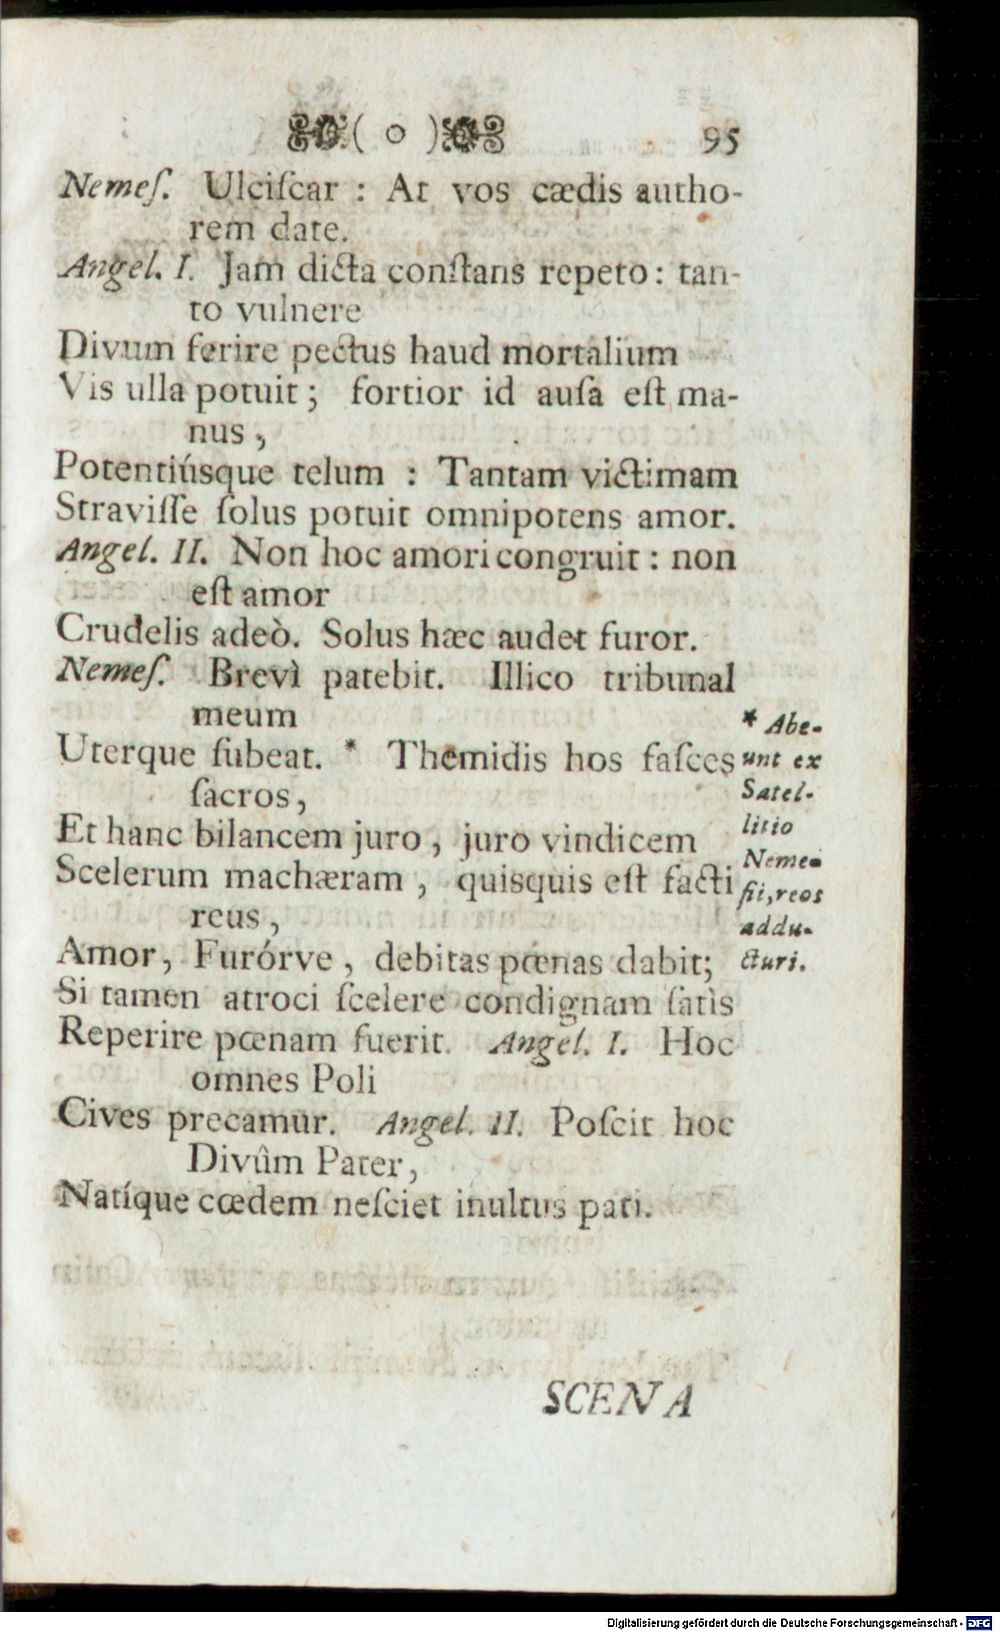 ( o ) 95
Nemeſ. Ulciſcar : At vos cædis autho-
rem date.
Angel. I. Jam dicta conſtans repeto: tan-
to vulnere
Divum ferire pectus haud mortalium
Vis ulla potuit ; fortior id auſa eſt ma-
nus ,
Potentiúsque telum : Tantam victimam
Straviſſe ſolus potuit omnipotens amor.
Angel. II. Non hoc amori congruit : non
eſt amor
Crudelis adeò. Solus hæc audet furor.
Nemeſ. Brevì patebit. Illico tribunal
meum
Uterque ſubeat. * Themidis hos faſces
ſacros,
Et hanc bilancem juro , juro vindicem
Scelerum machæram , quisquis eſt facti
reus ,
Amor, Furórve , debitas pœnas dabit;
Si tamen atroci ſcelere condignam ſatìs
Reperire pœnam fuerit. Angel. I. Hoc
omnes Poli
Cives precamur. Angel. II. Poſcit hoc
Divûm Pater,
Natíque cœdem neſciet inultus pati.
* Abe-
unt ex
Satel-
litio
Neme-
ſii, reos
addu-
cturi.
SCENA
Digitalisierung gefördert durch die Deutsche Forschungsgemeinschaft - DFG